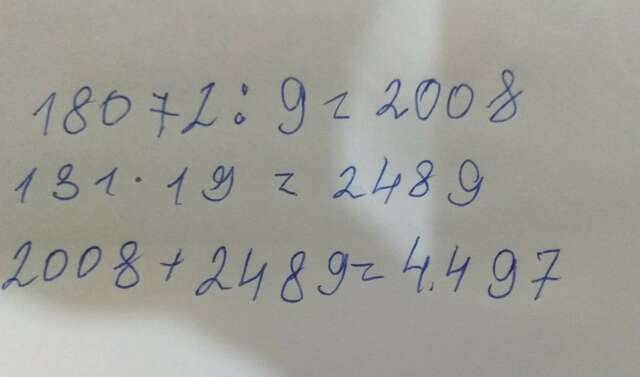 18072:9=2008
131·19=2489
2008+2489=4.497